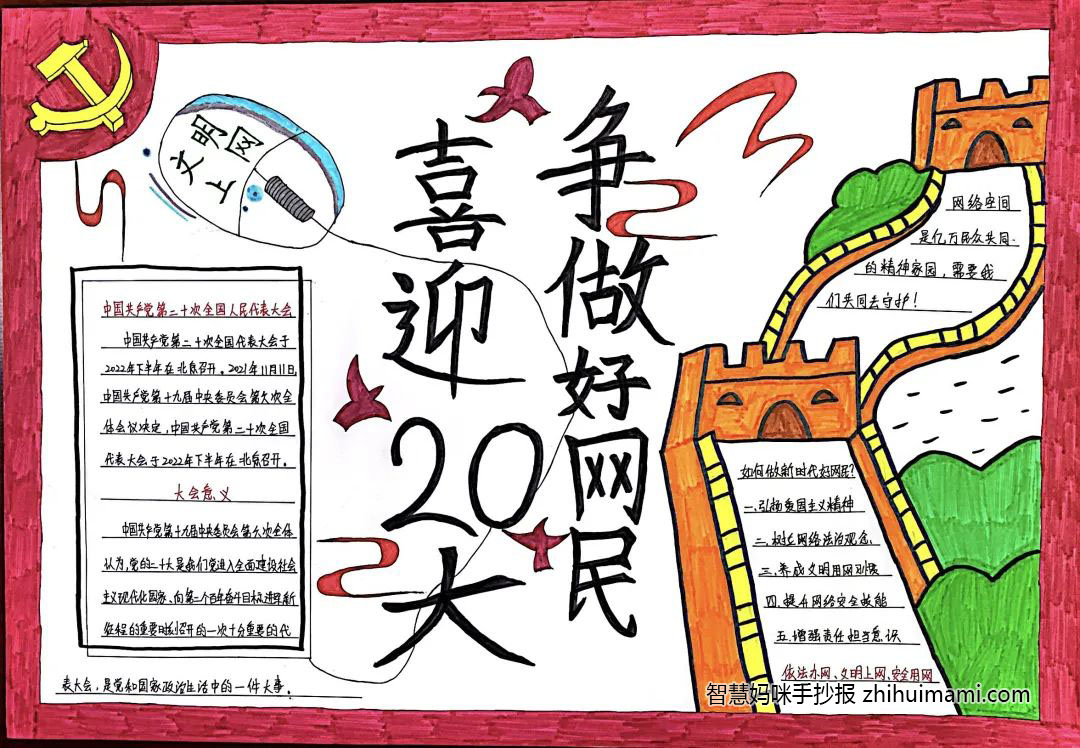 文明
上网
争做好网民
喜迎20大
中国共产党第二十次全国人民代表大会
中国共产党第二十次全国代表大会于
2022年下半年在北京召开。2021年11月11日,
中国共产党第十九届中央委员会第六次全
体会议决定,中国共产党第二十次全国
代表大会于2022年下半年在北京召开。
大会意义
中国共产党第十九届中央委员会第六次全体
认为,党的二十大是我们党进入全面建设社会
主义现代化国家、向第二个百年奋斗目标进军新
征程的重要时刻召开的一次十分重要的代
表大会,是党和国家政治生活中的一件大事。
网络空间
是亿万民众共同
的精神家园,需要我
们共同去守护!
如何做新时代好网民?
一.弘扬爱国主义精神
二.树立网络法治观念、
三.养成文明用网习惯
四.提升网络安全技能
五.增强责任担当意识
依法办网、文明上网、安全用网
智慧妈咪手抄报 zhihuimami.com